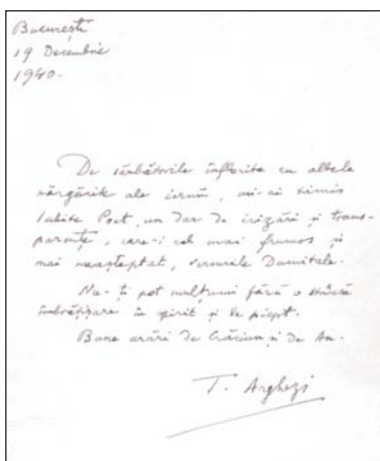 București
19 Decembrie
1940.
De sărbătorile înflorite cu albele
mărgărite ale iernii, mi-ai trimis
Iubite Poet, un dar de irizări și trans-
parențe, care-i cel mai frumos și
mai neașteptat, versurile Dumitale.
Nu-ți pot mulțumi fără o
îmbrățișare în spirit și la piept.
Bune urări de Crăciun și de An.
T. Arghezi